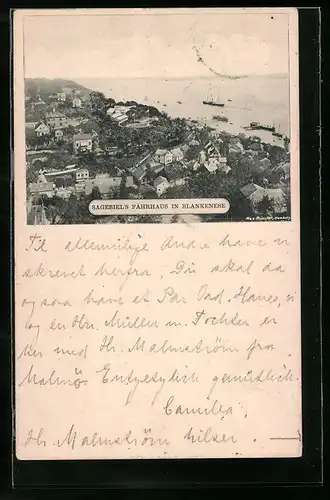 SAGEBIEL'S FÄHRHAUS IN BLANKENESE
Til allemulige Andre have vi
skrevet herfra, Du skal da
og saa have et Par Ord, Hanes, vi
og en Hr. Müller m. Tochter er
her med Hr. Malmström fra
Malmös Entzetzlich gemütlich.
Camilla.
Hr. Malmström hilser.